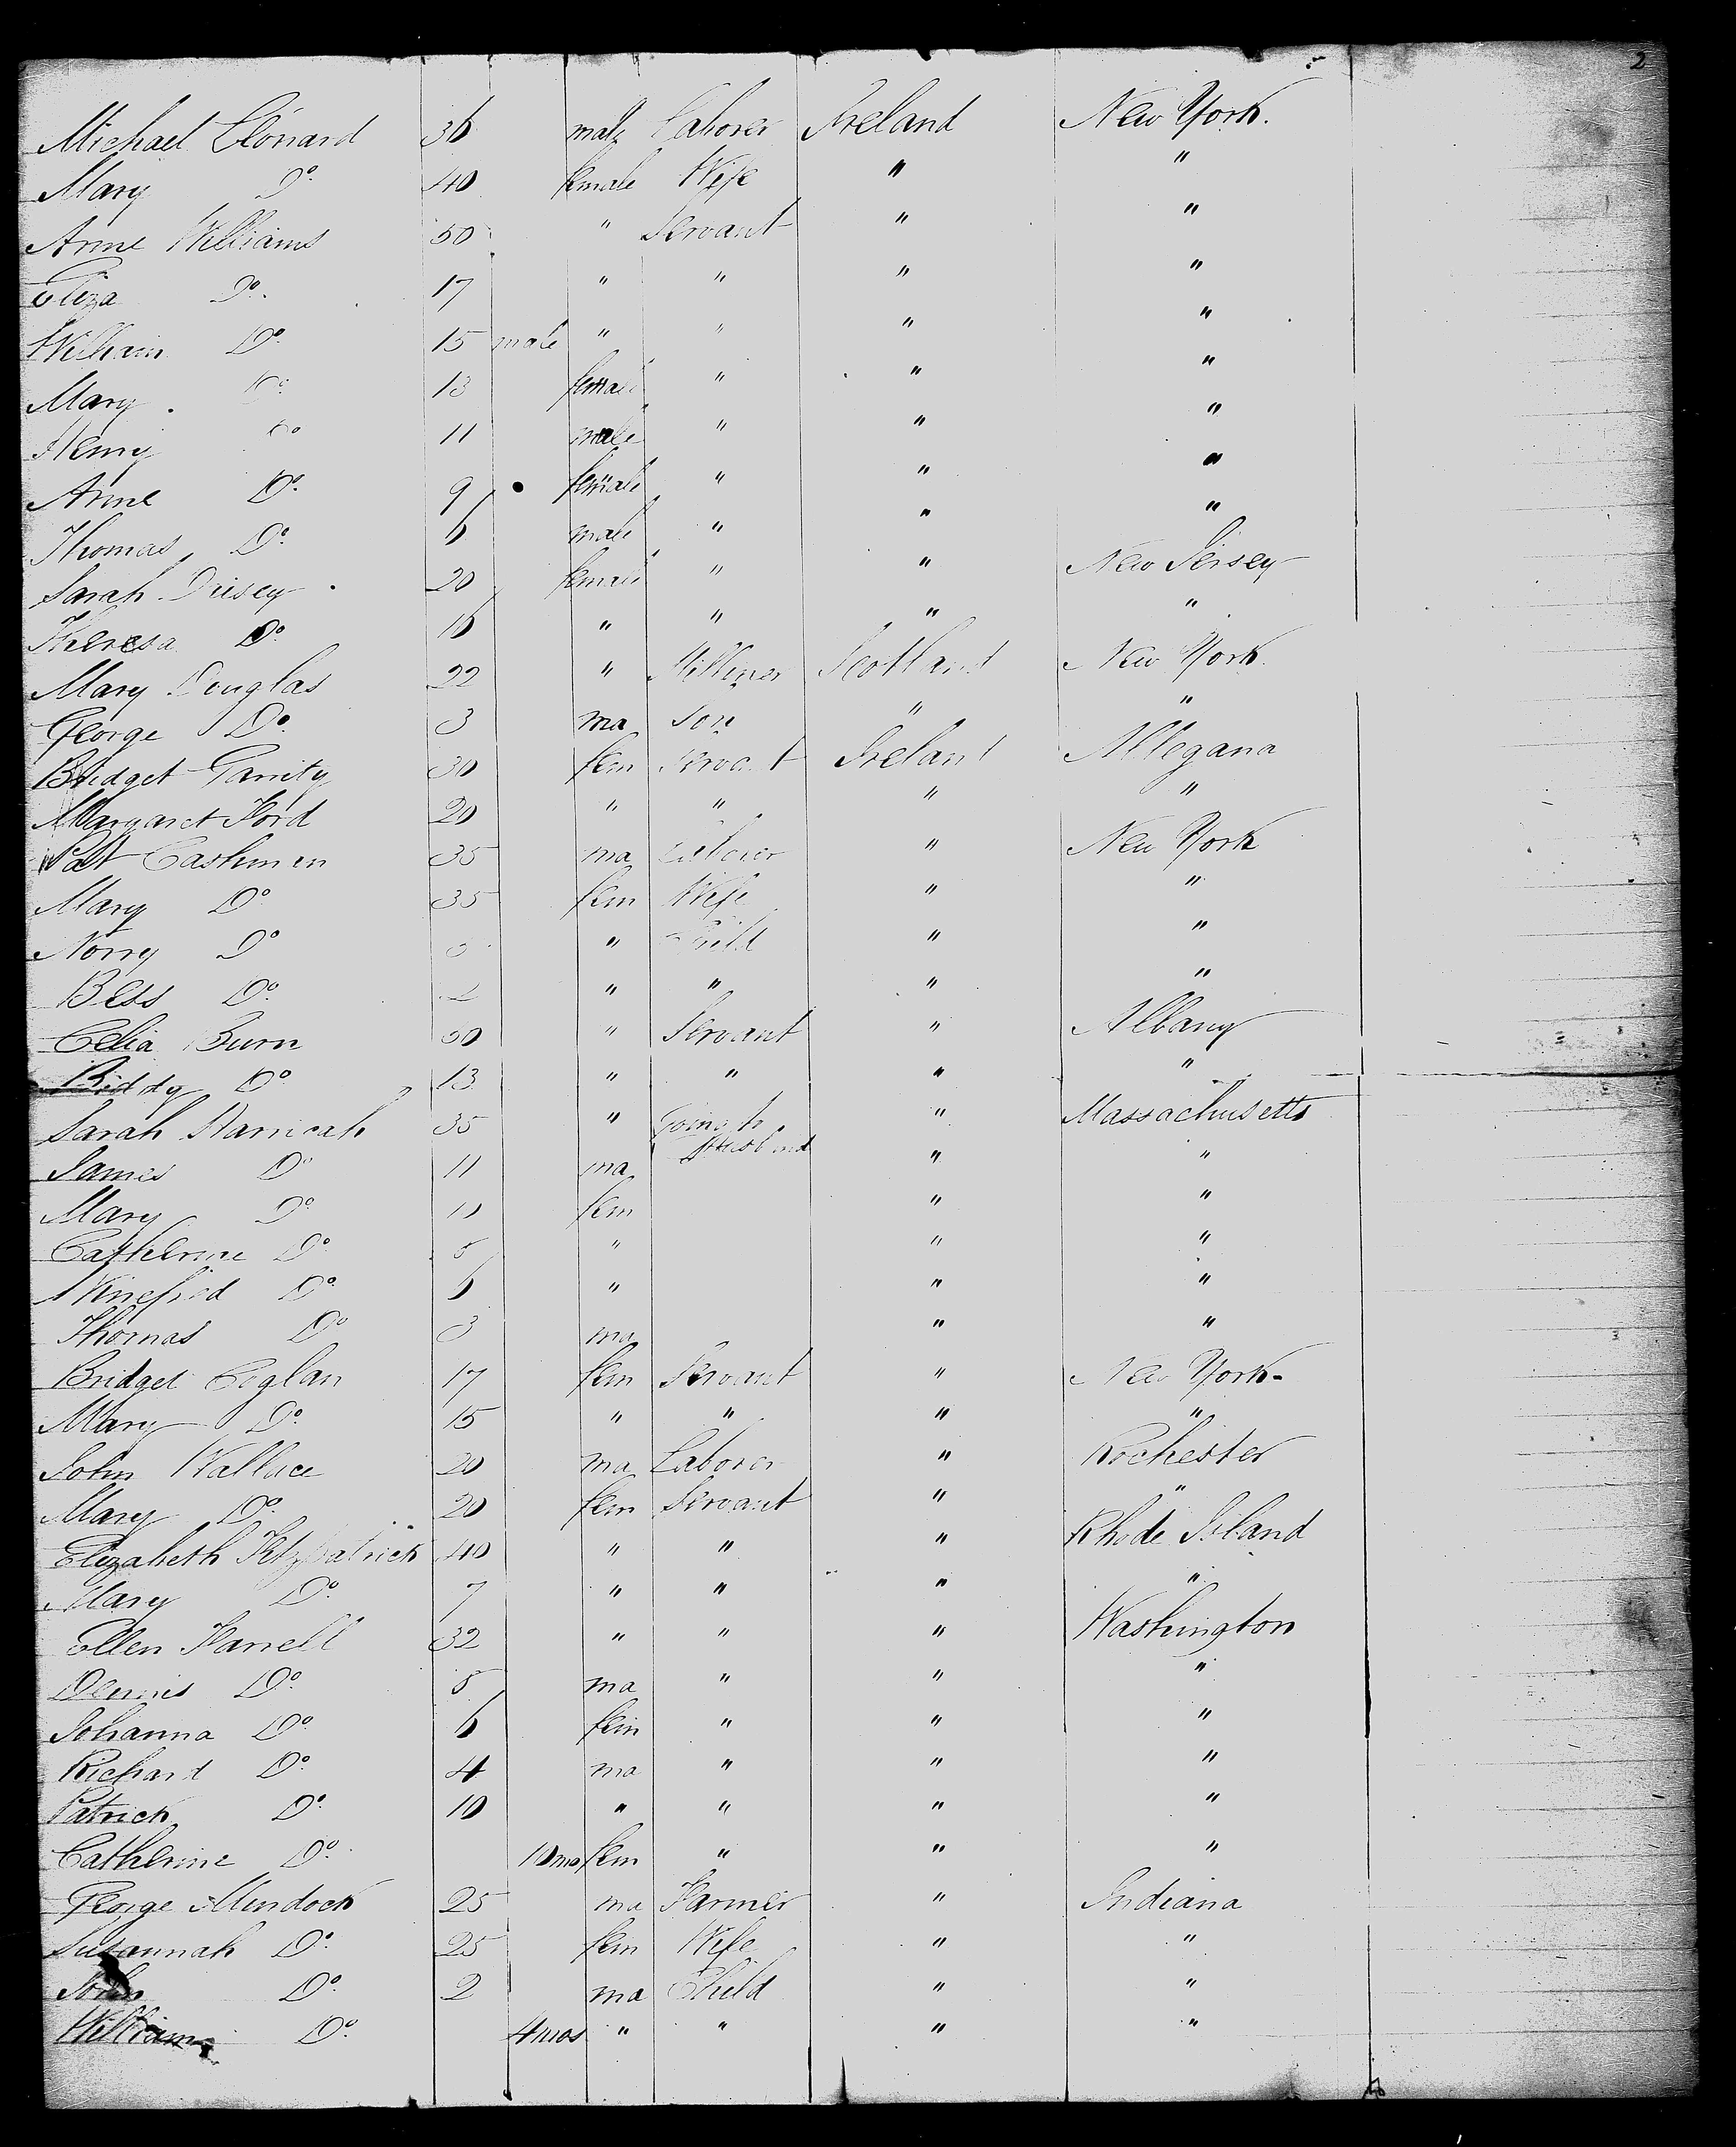 2
Michael Leonard 36 male Laborer Ireland New York.
Mary Do 40 female Wife " "
Anne Williams 50 " Servant " "
Eliza Do 17 " " " "
William Do 15 male " " " "
Mary Do 13 female " " "
Henry Do 11 male " " "
Anne Do 9 female " " "
Thomas Do 6 male " " "
Sarah Driscy 20 female " " New Jersey
Theresa Do 16 " " " "
Mary Douglas 22 " Milliner Scotland New York
George Do 3 ma Son " "
Bridget Garrity 30 fem Servant Ireland Allegana
Margaret Ford 20 " " " "
Patt Cashman 35 ma Laborer " New York
Mary Do 35 fem Wife " "
Norry Do " Child " "
Bess Do 2 " " " "
Celia Burn 30 " Servant " Albany
Biddy Do 13 " " " "
Sarah Hanneah 35 " Going to Husband " Massachusetts
James Do 11 ma " "
Mary Do 10 fem " "
Catherine Do 5 " " "
Winefred Do 6 " " "
Thomas Do 3 ma " "
Bridget Coglan 17 fem Servant " New York
Mary Do 15 " " " "
John Wallace 20 ma Laborer " Rochester
Mary Do 20 fem Servant " "
Elizabeth Fitzpatrick 40 " " " Rhode Island
Mary Do 7 " " " "
Ellen Farrell 32 " " " Washington
Dennis Do 5 ma " " "
Johanna Do 6 fem " " "
Richard Do 4 ma " " "
Patrick Do 10 " " " "
Catherine Do 10 mo fem " " "
George Murdock 25 ma Farmer " Indiana
Susannah Do 25 fem Wife " "
John Do 2 ma Child " "
William Do 4 mos " " " "